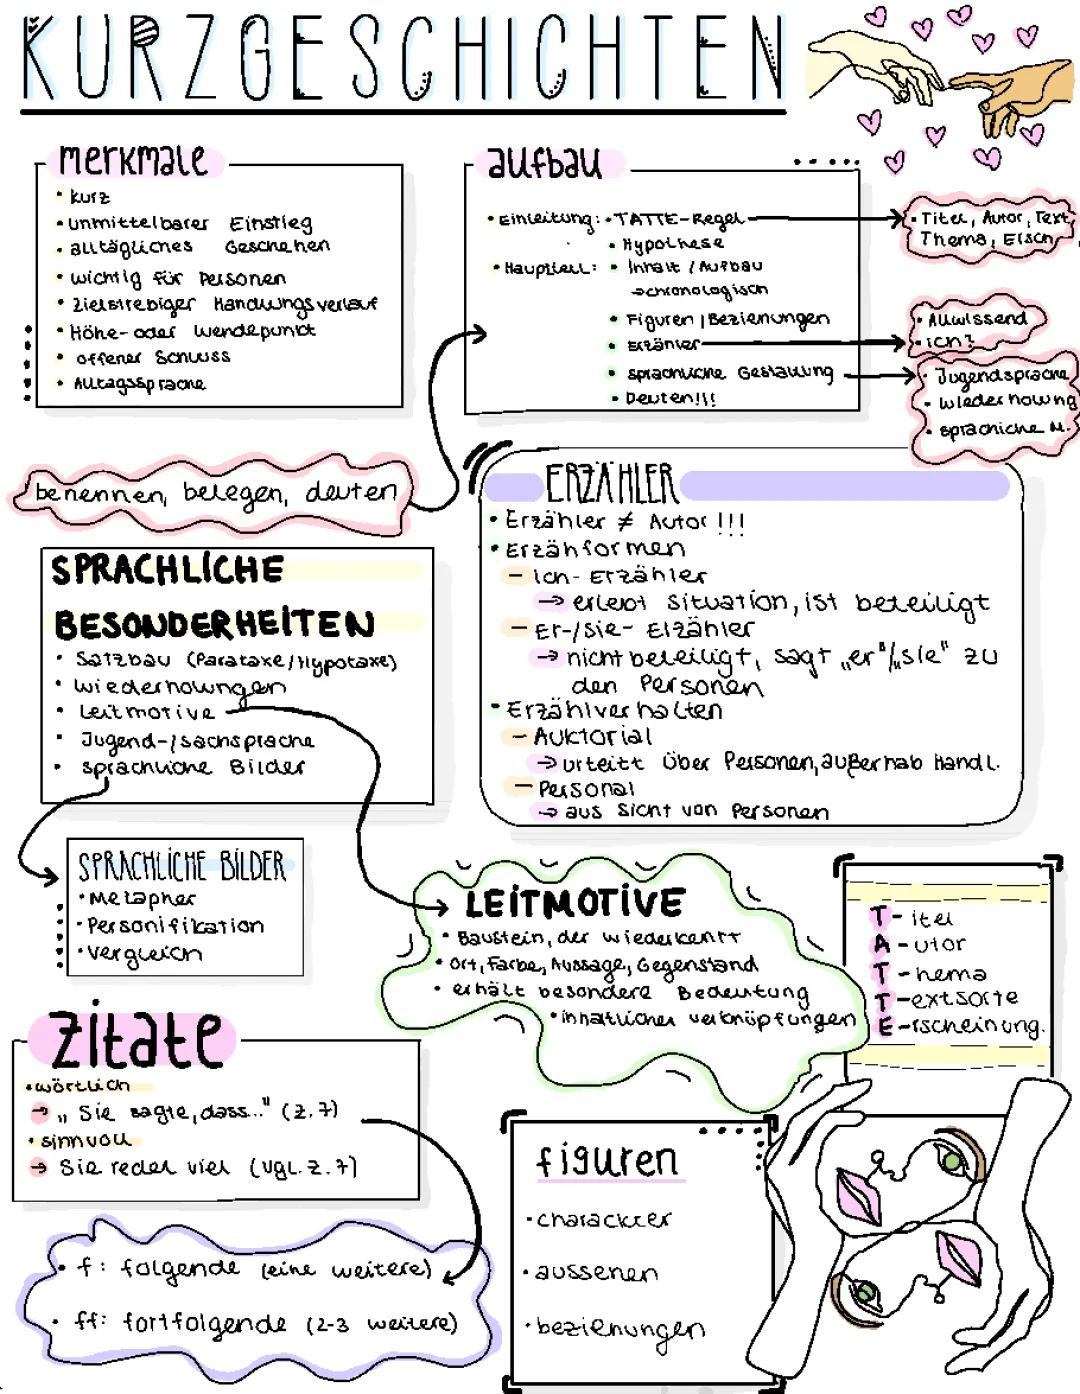 KURZGESCHICHTEN
merkmale
• kurz
• unmittelbarer Einstieg
• alltägliches Geschehen
• wichtig für Personen
• zielstrebiger Handlungsverlauf
• Höhe- oder Wendepunkt
• offener Schluss
• Alltagssprache
aufbau
• Einleitung: • TATTE-Regel
• Hypothese
• Hauptteil: • Inhalt / Aufbau
→ chronologisch
• Figuren / Beziehungen
• Erzähler
• sprachliche Gestaltung
• Deuten!!!
• Titel, Autor, Text,
Thema, Ersch.
• Allwissend
• ich?
• Jugendsprache
• wiederholung
• sprachliche M.
benennen, belegen, deuten
ERZÄHLER
• Erzähler ≠ Autor !!!
• Erzählformen
– Ich-Erzähler
→ erlebt Situation, ist beteiligt
– Er-/sie-Erzähler
→ nicht beteiligt, sagt „er"/„sie" zu
den Personen
• Erzählverhalten
– Auktorial
→ urteilt über Personen, außerhalb Handl.
– Personal
→ aus Sicht von Personen
SPRACHLICHE
BESONDERHEITEN
• Satzbau (Parataxe/Hypotaxe)
• wiederholungen
• Leitmotive
• Jugend-/sachsprache
• sprachliche Bilder
SPRACHLICHE BILDER
• Metapher
• Personifikation
• vergleich
LEITMOTIVE
• Baustein, der wiederkehrt
• Ort, Farbe, Aussage, Gegenstand
• erhält besondere Bedeutung
• inhaltlicher verknüpfungen
T- itel
A- utor
T- hema
T- extsorte
E- rscheinung.
zitate
• wörtlich
→ „ Sie sagte, dass..." (z. 7)
• sinnvoll
→ Sie redet viel (vgl. z. 7)
• f: folgende (eine weitere)
• ff: fortfolgende (2-3 weitere)
figuren
• charackter
• aussehen
• beziehungen